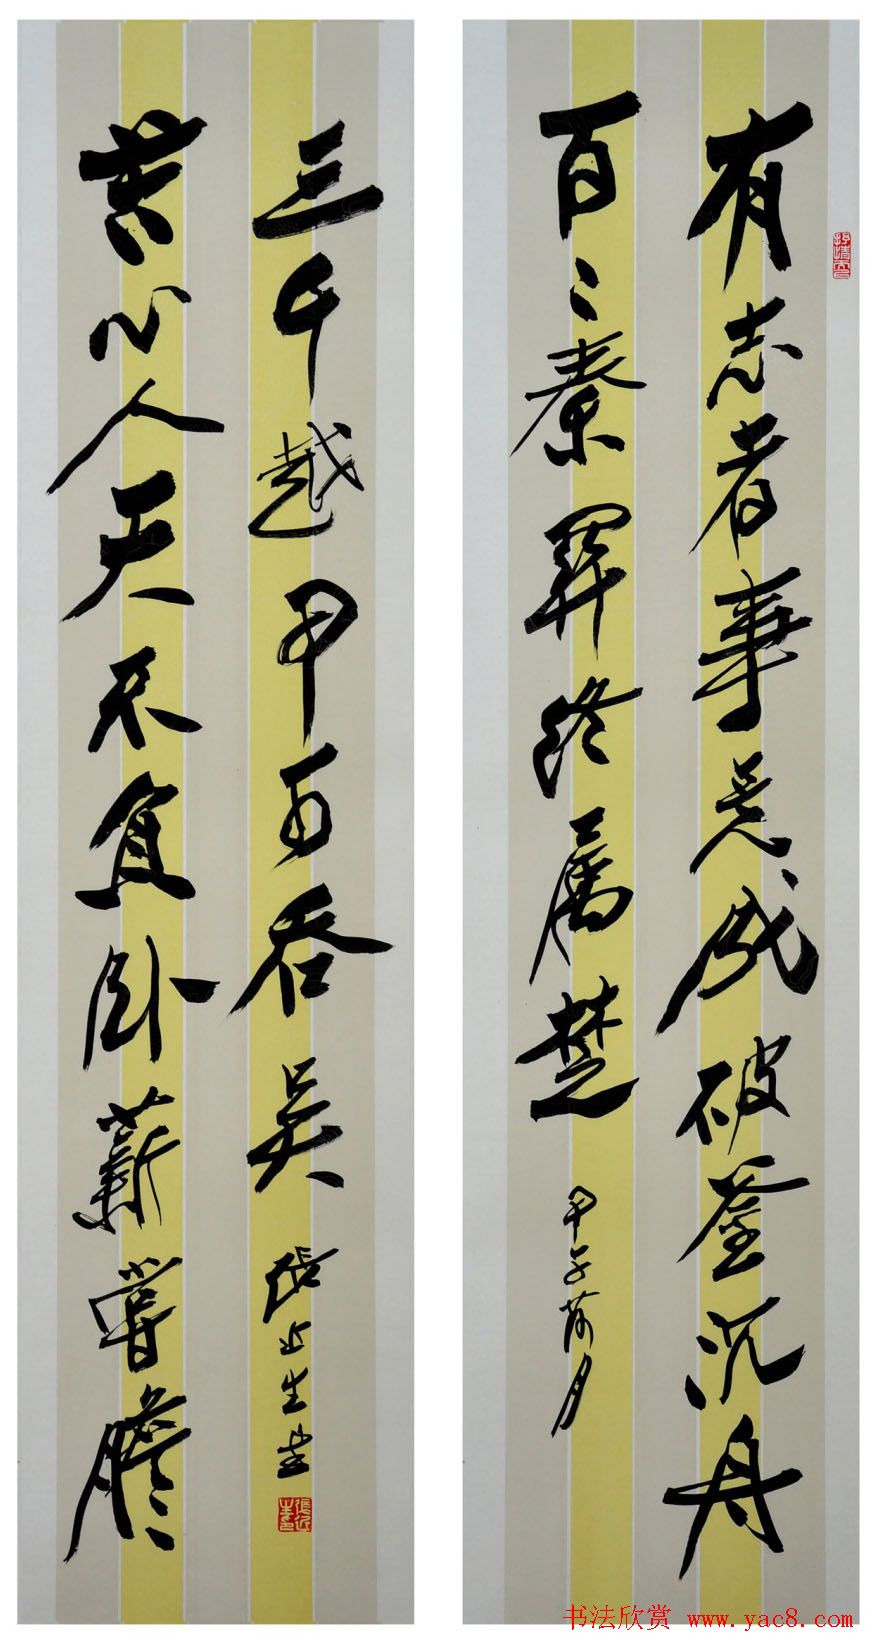 有志者事竟成破釜沉舟
百二秦關終屬楚
甲子荷月
苦心人天不負卧薪嘗膽
三千越甲可吞吳
張近生書
书法欣赏 www.yac8.com